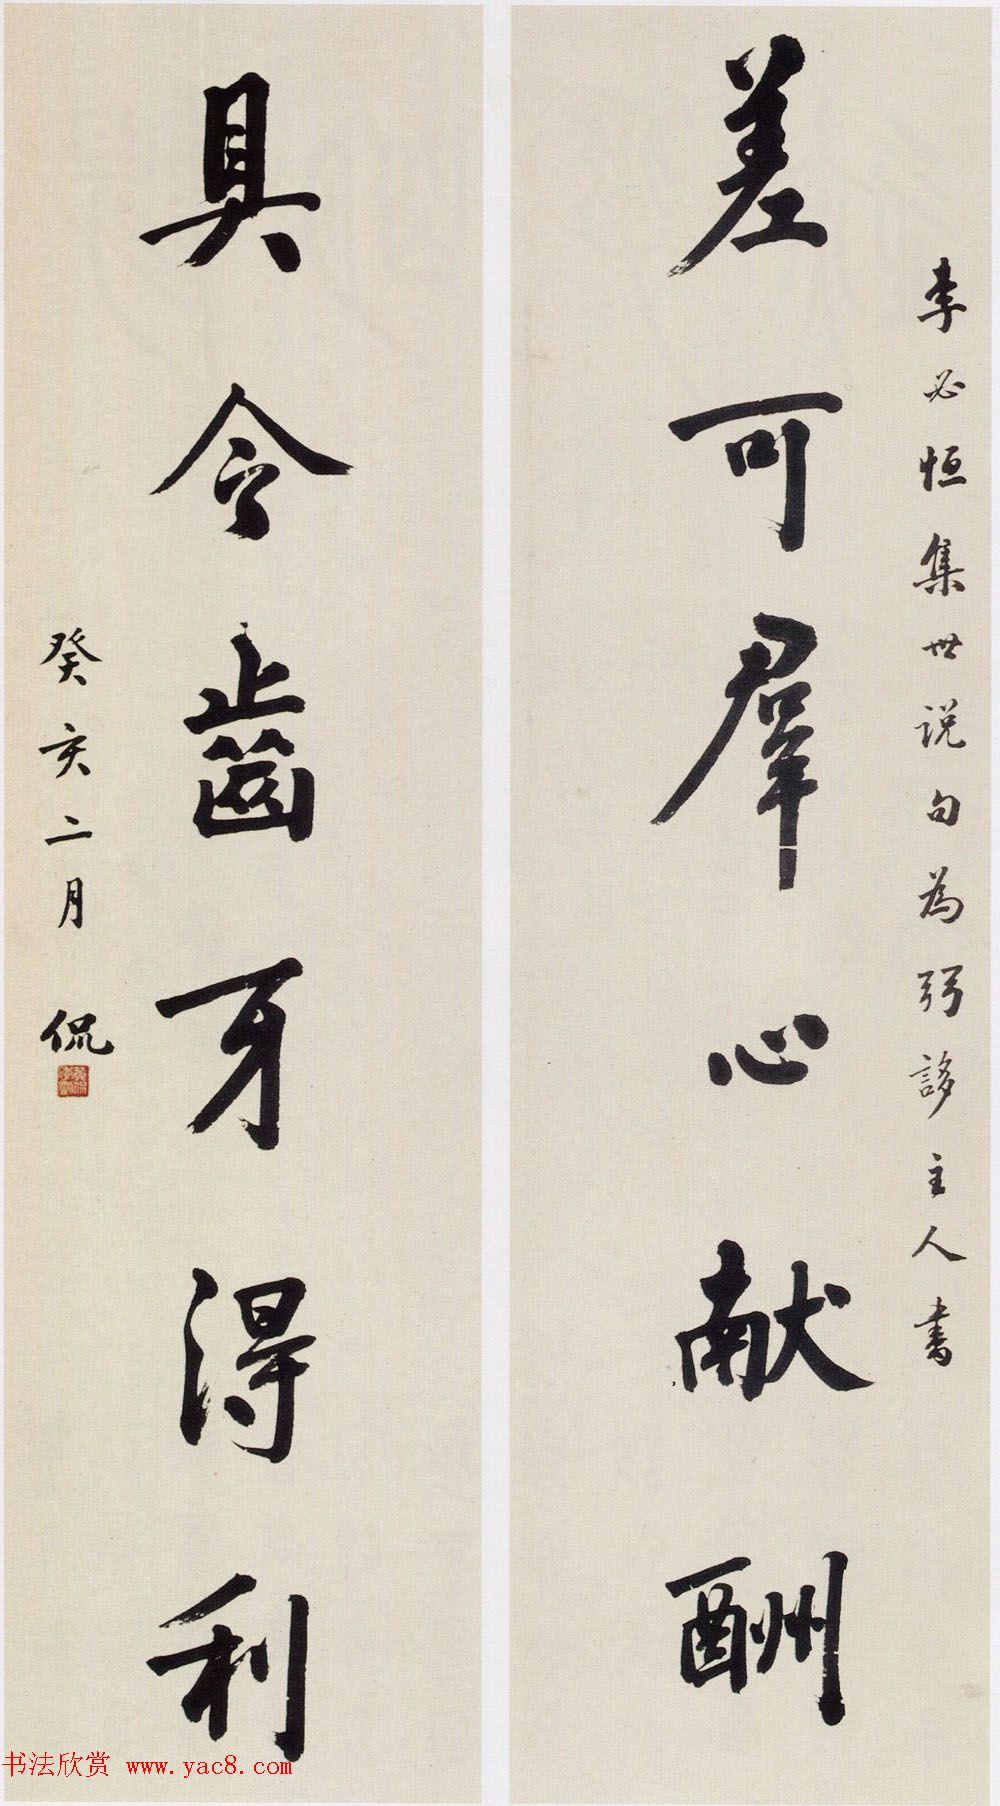 差可羣心献酬
李必恒集世说句為弜誃主人書
具令齒牙得利
癸亥二月 侃
书法欣赏 www.yac8.com